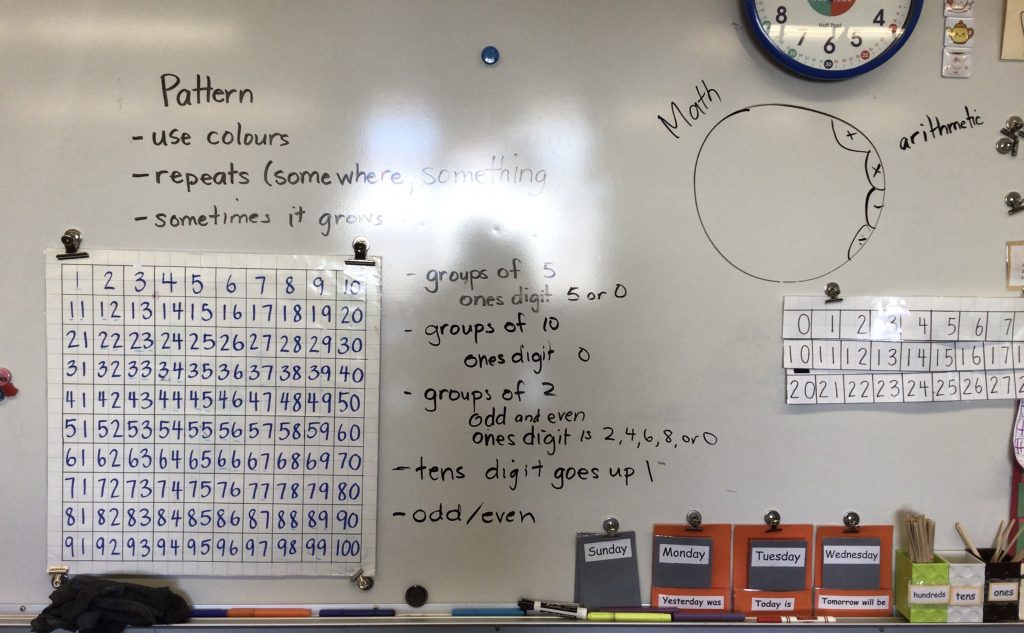 Pattern
- use colours
- repeats (somewhere, something)
- sometimes it grows
1 2 3 4 5 6 7 8 9 10
11 12 13 14 15 16 17 18 19 20
21 22 23 24 25 26 27 28 29 30
31 32 33 34 35 36 37 38 39 40
41 42 43 44 45 46 47 48 49 50
51 52 53 54 55 56 57 58 59 60
61 62 63 64 65 66 67 68 69 70
71 72 73 74 75 76 77 78 79 80
81 82 83 84 85 86 87 88 89 90
91 92 93 94 95 96 97 98 99 100
- groups of 5
ones digit 5 or 0
- groups of 10
ones digit 0
- groups of 2
odd and even
ones digit is 2, 4, 6, 8, or 0
- tens digit goes up 1
- odd/even
8 7 6 5 4
Half Past
Math
arithmetic
+
x
-
÷
0 1 2 3 4 5 6 7
10 11 12 13 14 15 16 17
20 21 22 23 24 25 26 27
Sunday
Monday
Yesterday was
Tuesday
Today is
Wednesday
Tomorrow will be
hundreds
tens
ones